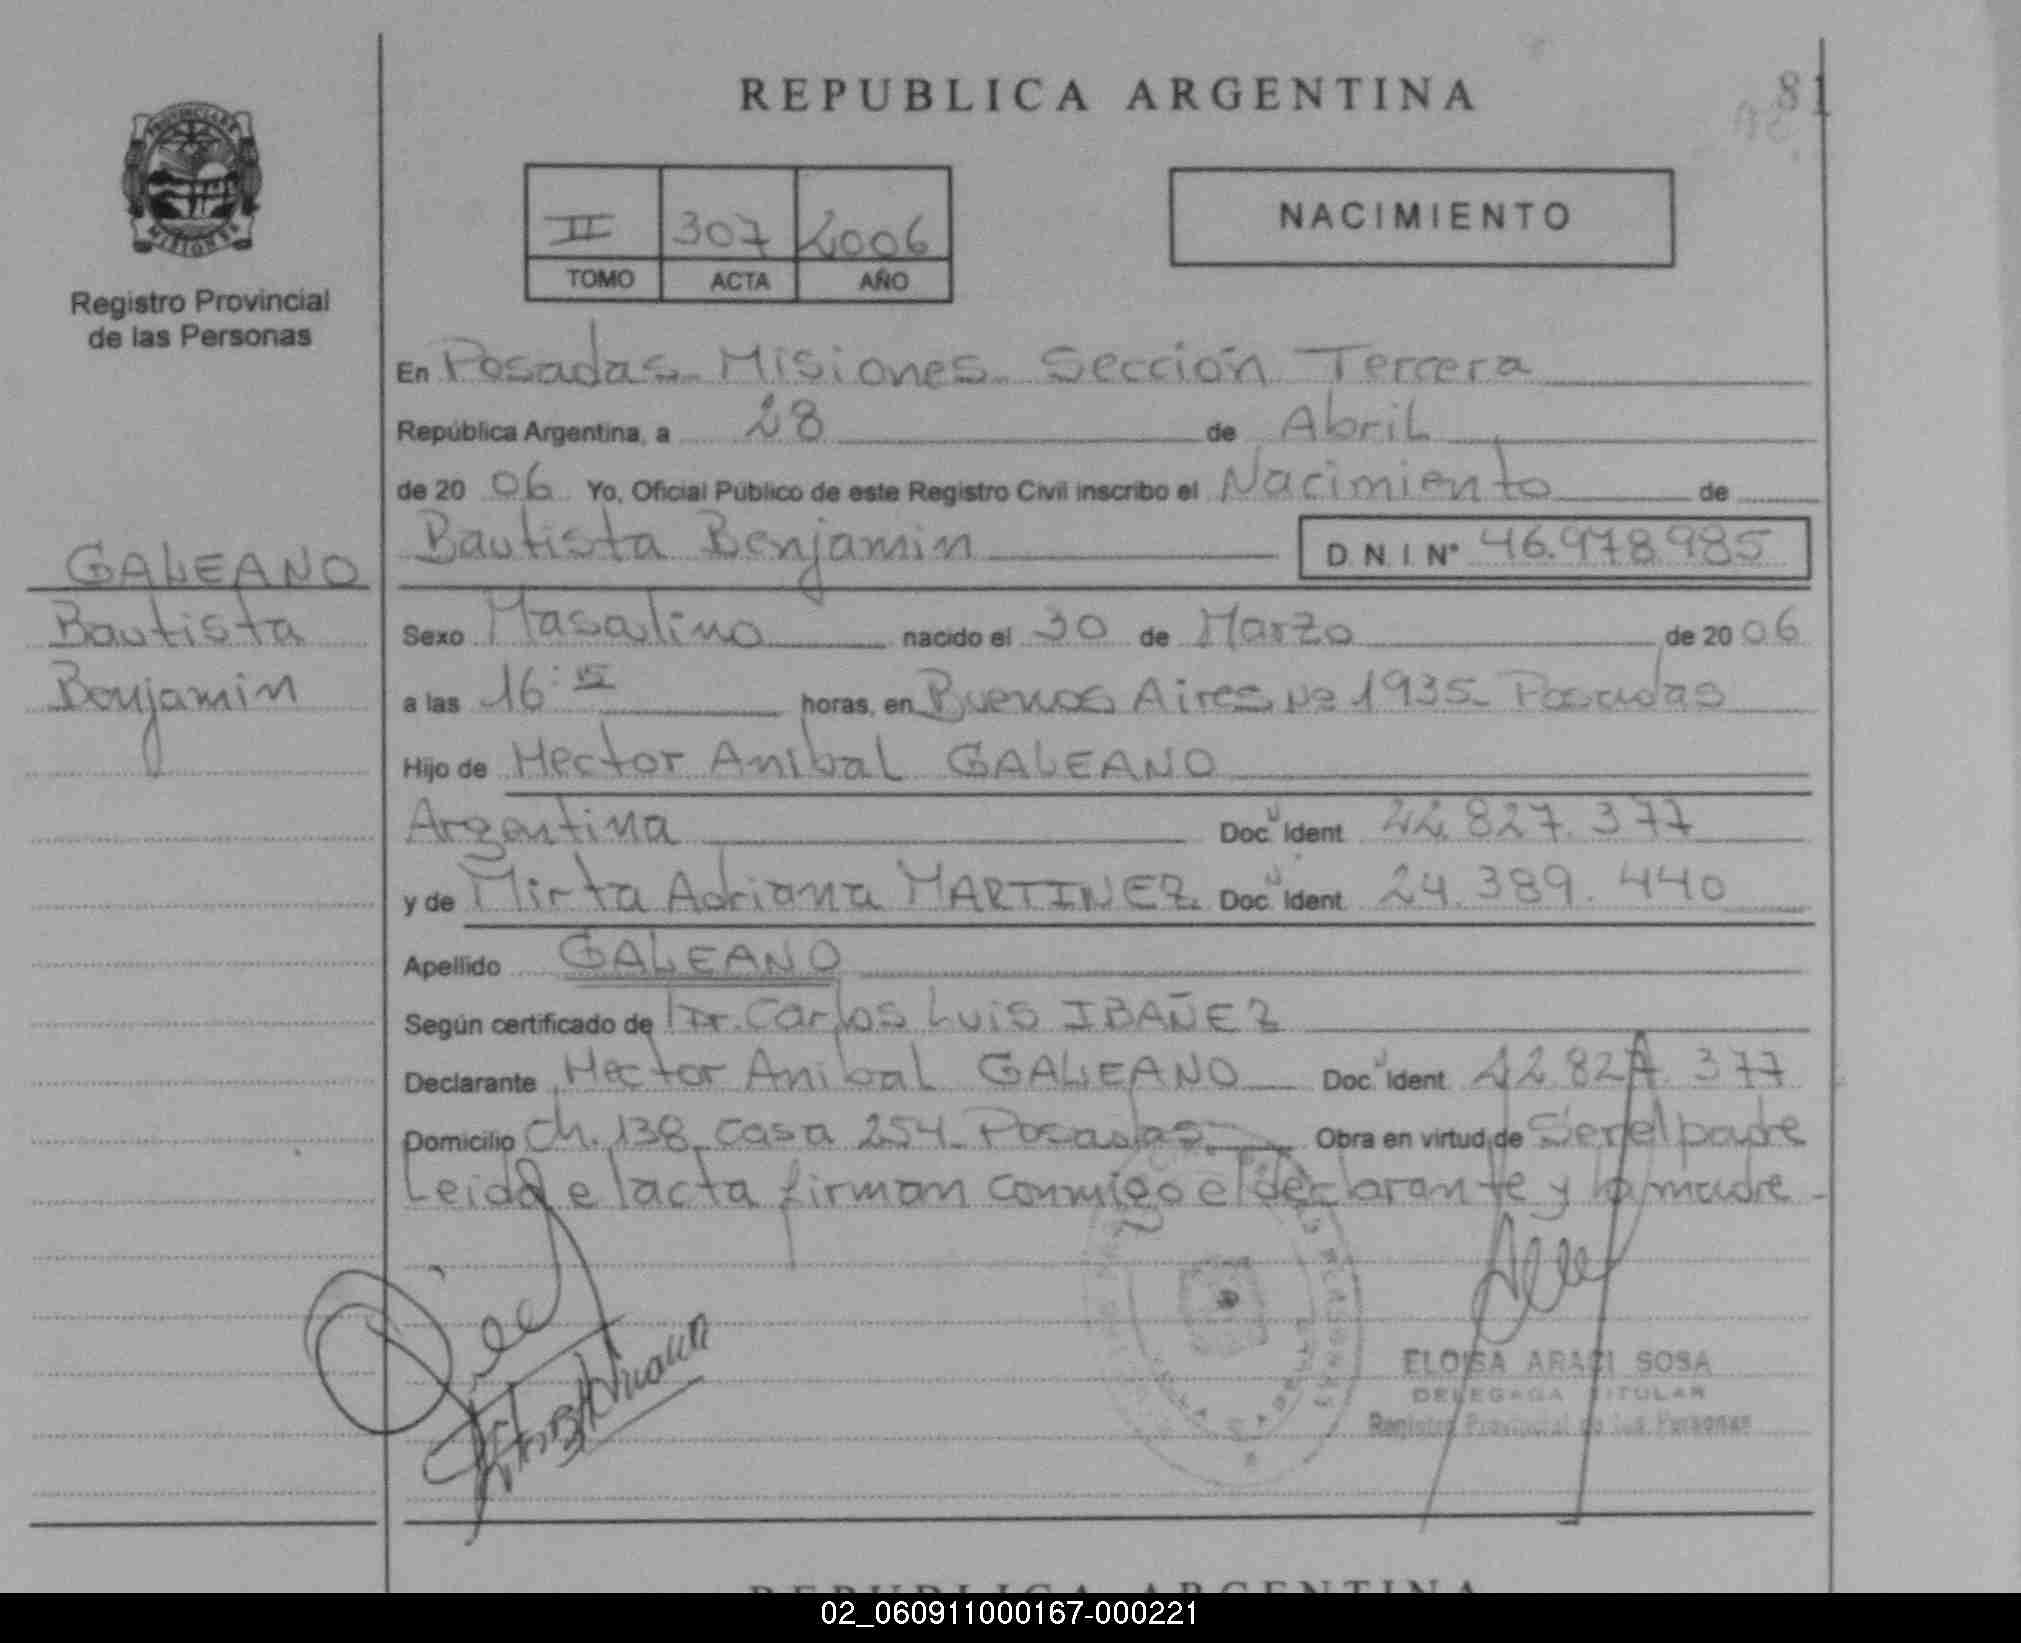 REPUBLICA ARGENTINA
81
PROVINCIA DE
MISIONES
Registro Provincial
de las Personas
II 307 2006
TOMO ACTA AÑO
NACIMIENTO
En Posadas Misiones Sección Tercera
República Argentina, a 28 de Abril
de 20 06 Yo, Oficial Público de este Registro Civil inscribo el Nacimiento de
Bautista Benjamin D.N.I. Nº 46.978.985
GALEANO
Bautista
Benjamin
Sexo Masculino nacido el 30 de Marzo de 20 06
a las 16: horas, en Buenos Aires Nº 1935 Posadas
Hijo de Hector Anibal GALEANO
Argentina Doc. Ident. 22.827.377
y de Mirta Adriana MARTINEZ Doc. Ident. 24.389.440
Apellido GALEANO
Según certificado de Dr. Carlos Luis IBAÑEZ
Declarante Hector Anibal GALEANO Doc. Ident. 22.827.377
Domicilio Ch. 138 Casa 254 Posadas Obra en virtud de Ser el padre
Leida el acta firman conmigo el declarante y la madre
ELOISA ARACI SOSA
DELEGADA TITULAR
Registro Provincial de las Personas
REPUBLICA ARGENTINA
02_060911000167-000221